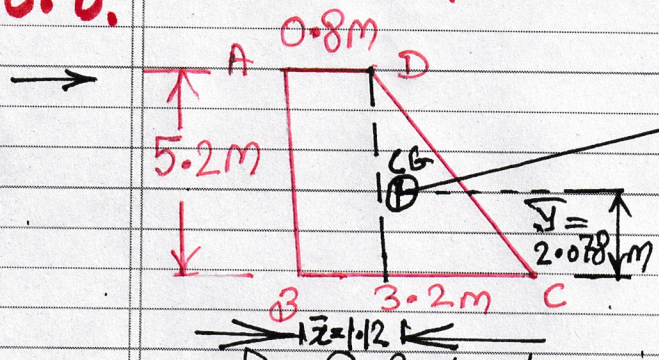 0.8M
A D
5.2M
CG
y̅=
2.078 M
B 3.2M C
x̅=1.12